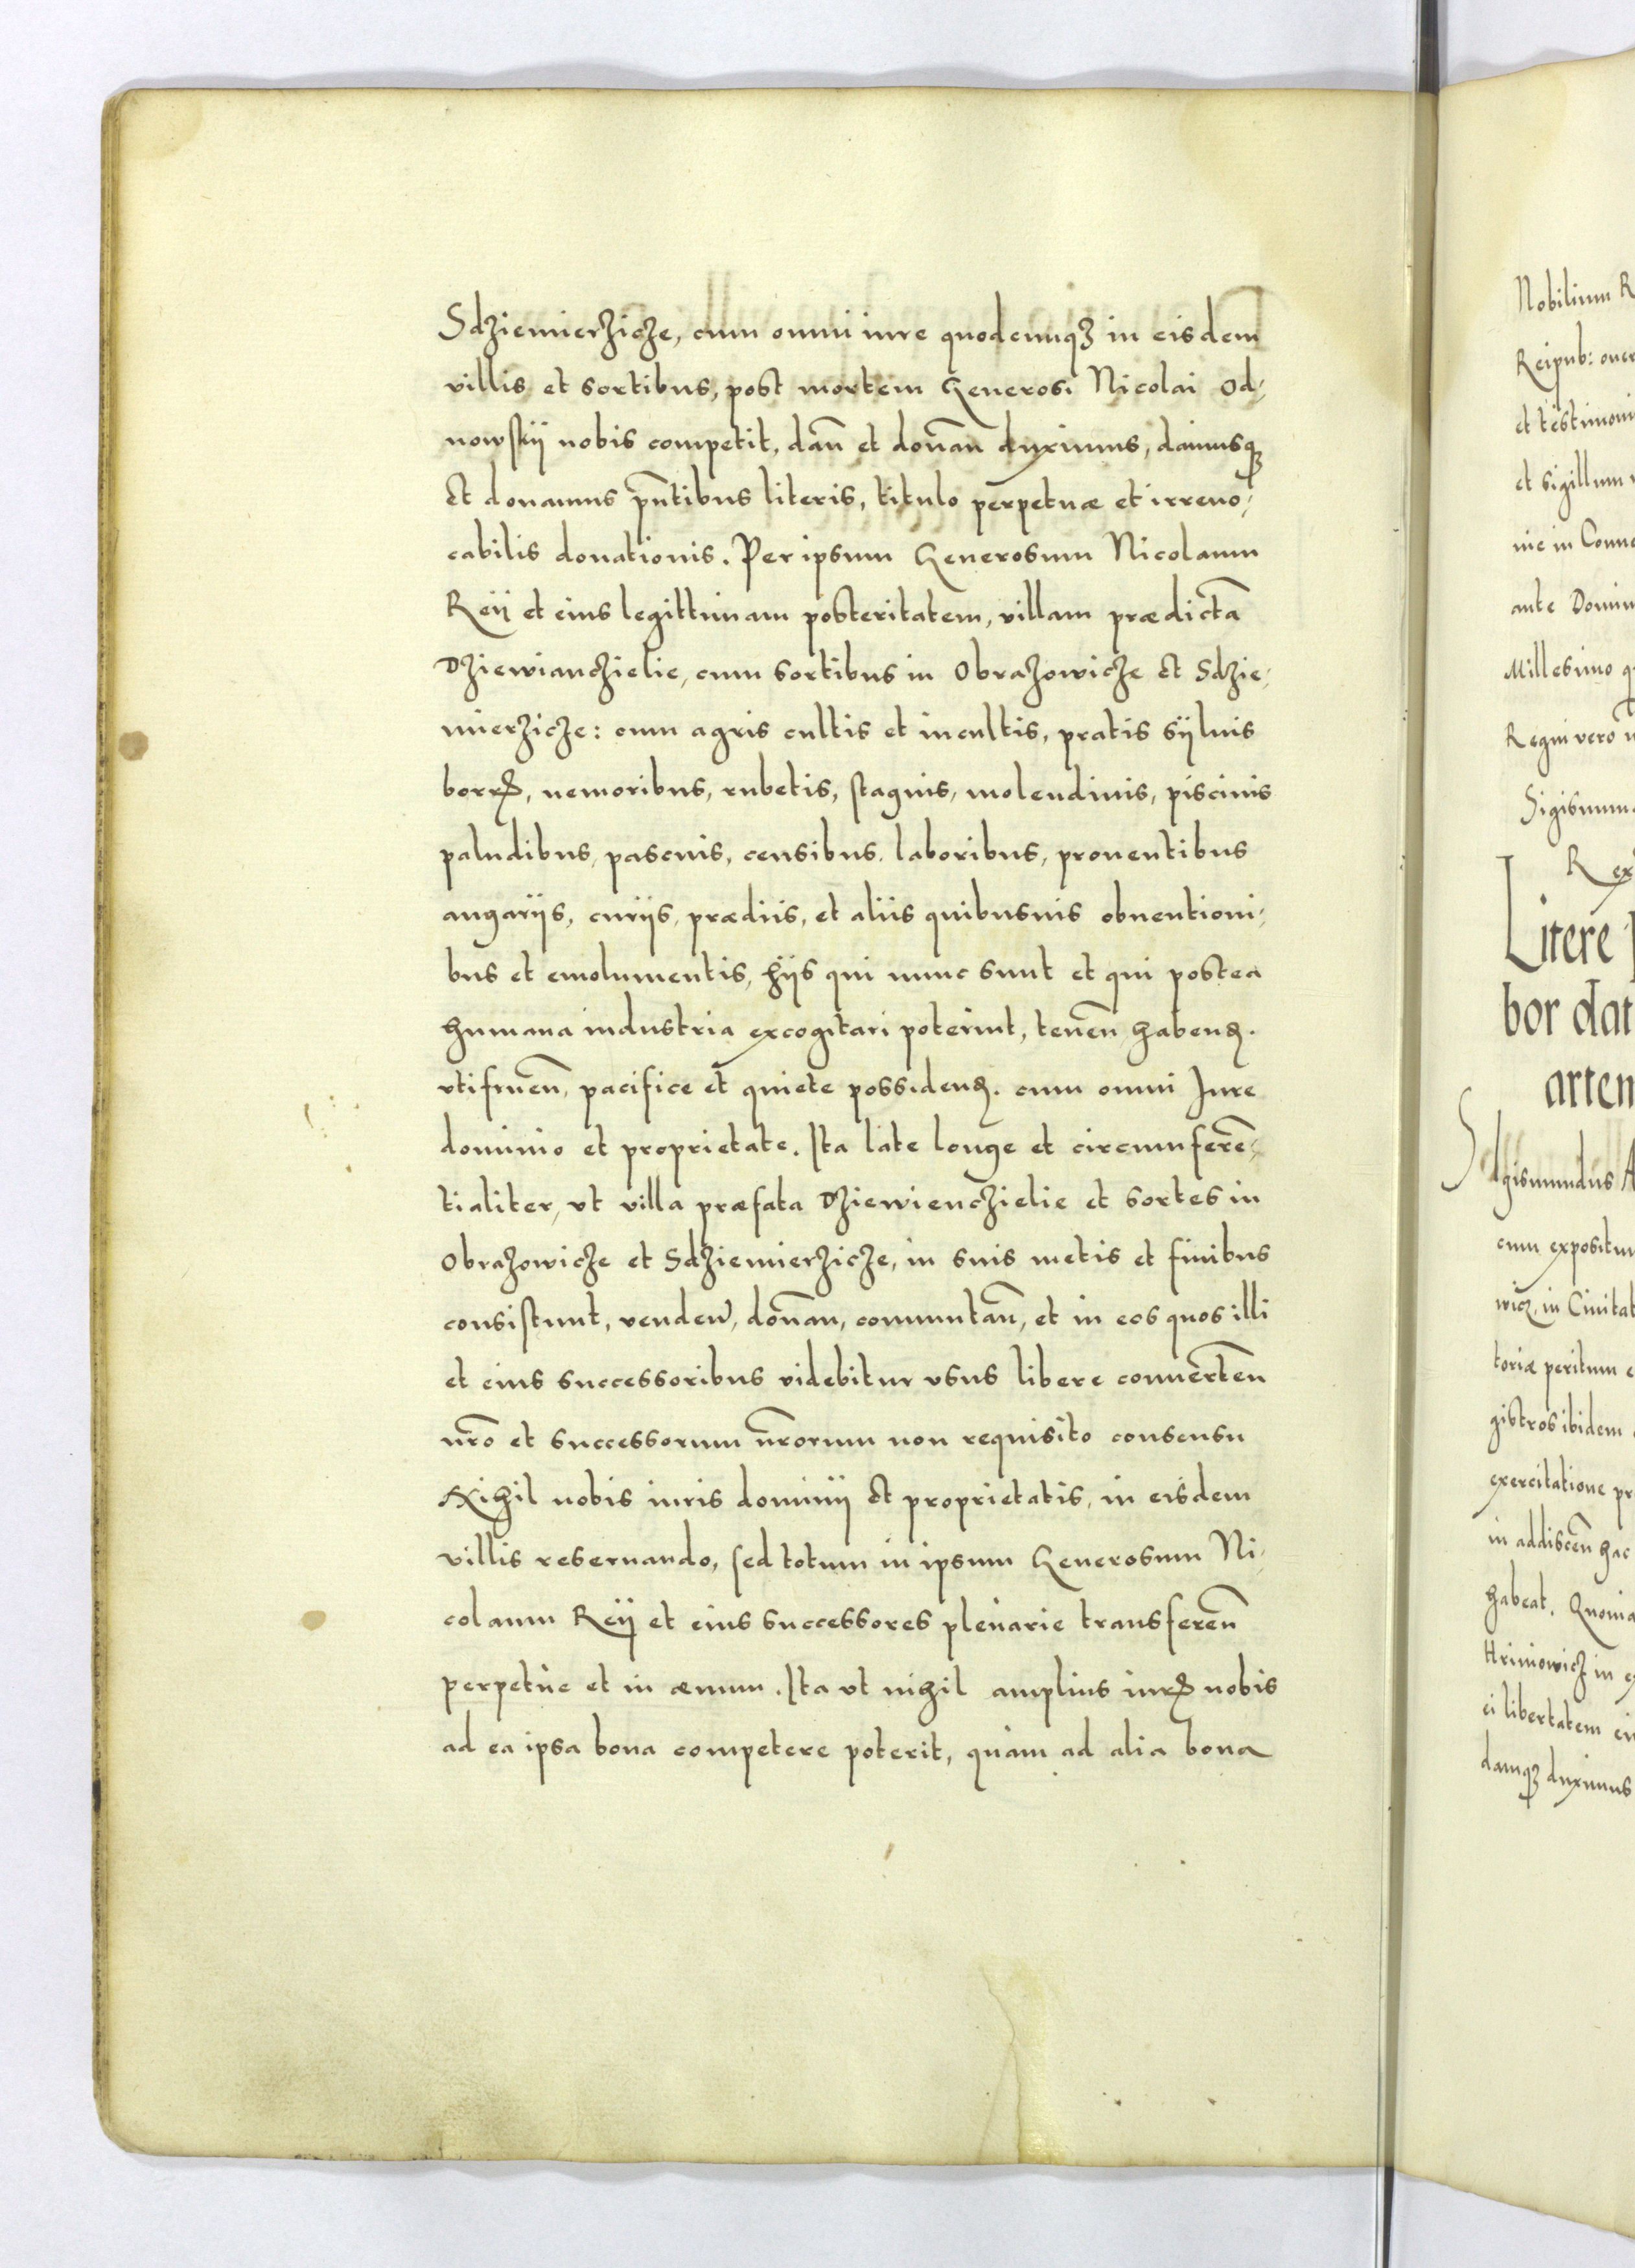 Sdziemierzicze, cum omni iure quodcunq̃ꝫ in eisdem
villis et sortibus, post mortem Generosi Nicolai Od-
nowskÿ nobis competit, dañ et donañ duximus, damusqꝫ
et donamus pñtibus literis, titulo perpetuæ et irreuo-
cabilis donationis. Per ipsum Generosum Nicolaum
Reÿ et eius legittimam posteritatem, villam prædictã
Dziewianczielie, cum sortibus in Obrazowicze et Sdzie-
mierzicze: cum agris cultis et incultis, pratis sÿluis
borrꝭ, nemoribus, rubetis, stagnis, molendinis, piscinis
paludibus, pascuis, censibus, laboribus, prouentibus
angarijs, curijs, prædiis, et aliis quibusuis obuentioni-
bus et emolumentis, hÿs qui nunc sunt et qui postea
humana industria excogitari poterint, teneñ habenꝺ.
vtifrueñ, pacifice et quiete possidenꝺ. cum omni Jure
dominio et proprietate. Ita late longe et circumferẽ-
tialiter, vt villa præfata Dziewienczielie et sortes in
Obrazowicze et Sdziemierzicze, in suis metis et finibus
consistunt, vendeñ, donañ, commutañ, et in eos quos illi
et eius successoribus videbitur vsus libere conuerteñ
nr̃o et successorum nr̃orum non requisito consensu
Nihil nobis iuris dominij et proprietatis, in eisdem
villis reseruando, sed totum in ipsum Generosum Ni-
colaum Reÿ et eius successores plenarie transfereñ
perpetue et in æuum. Ita vt nihil amplius iurꝭ nobis
ad ea ipsa bona competere poterit, quàm ad alia bona
Nobilium R
Reipub: oner
et testimoni
et sigillum
nie in Conue
ante Domin
Millesimo q
Regni vero n
Sigismun
Rex
Litere
bor dat
artem
Sigismundus A
cum expositu
wicz, in Ciuitat
toriæ peritum e
gistros ibidem
exercitatione pr
in addisceñ hac
habeat. Quonia
Hriniowicz in e
ei libertatem
damqꝫ duximus